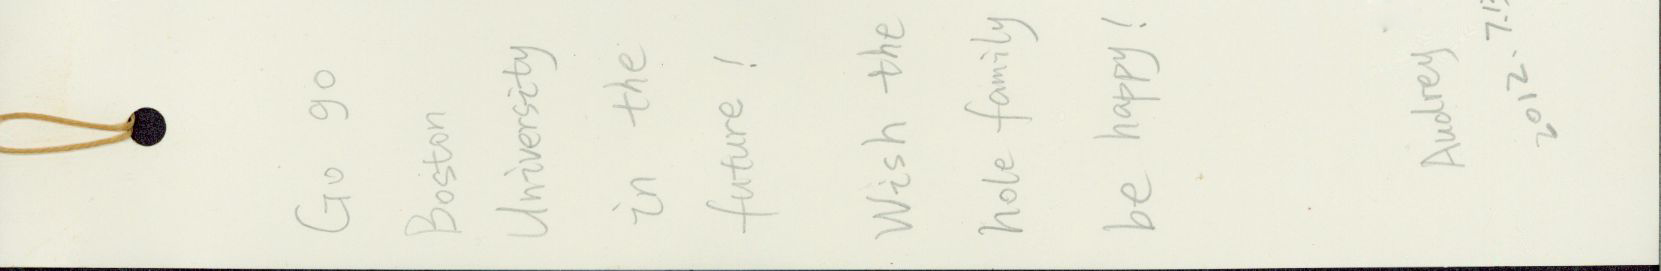 Go go
Boston
University
in the
future!
Wish the
hole family
be happy!
Audrey
2012. 7.13